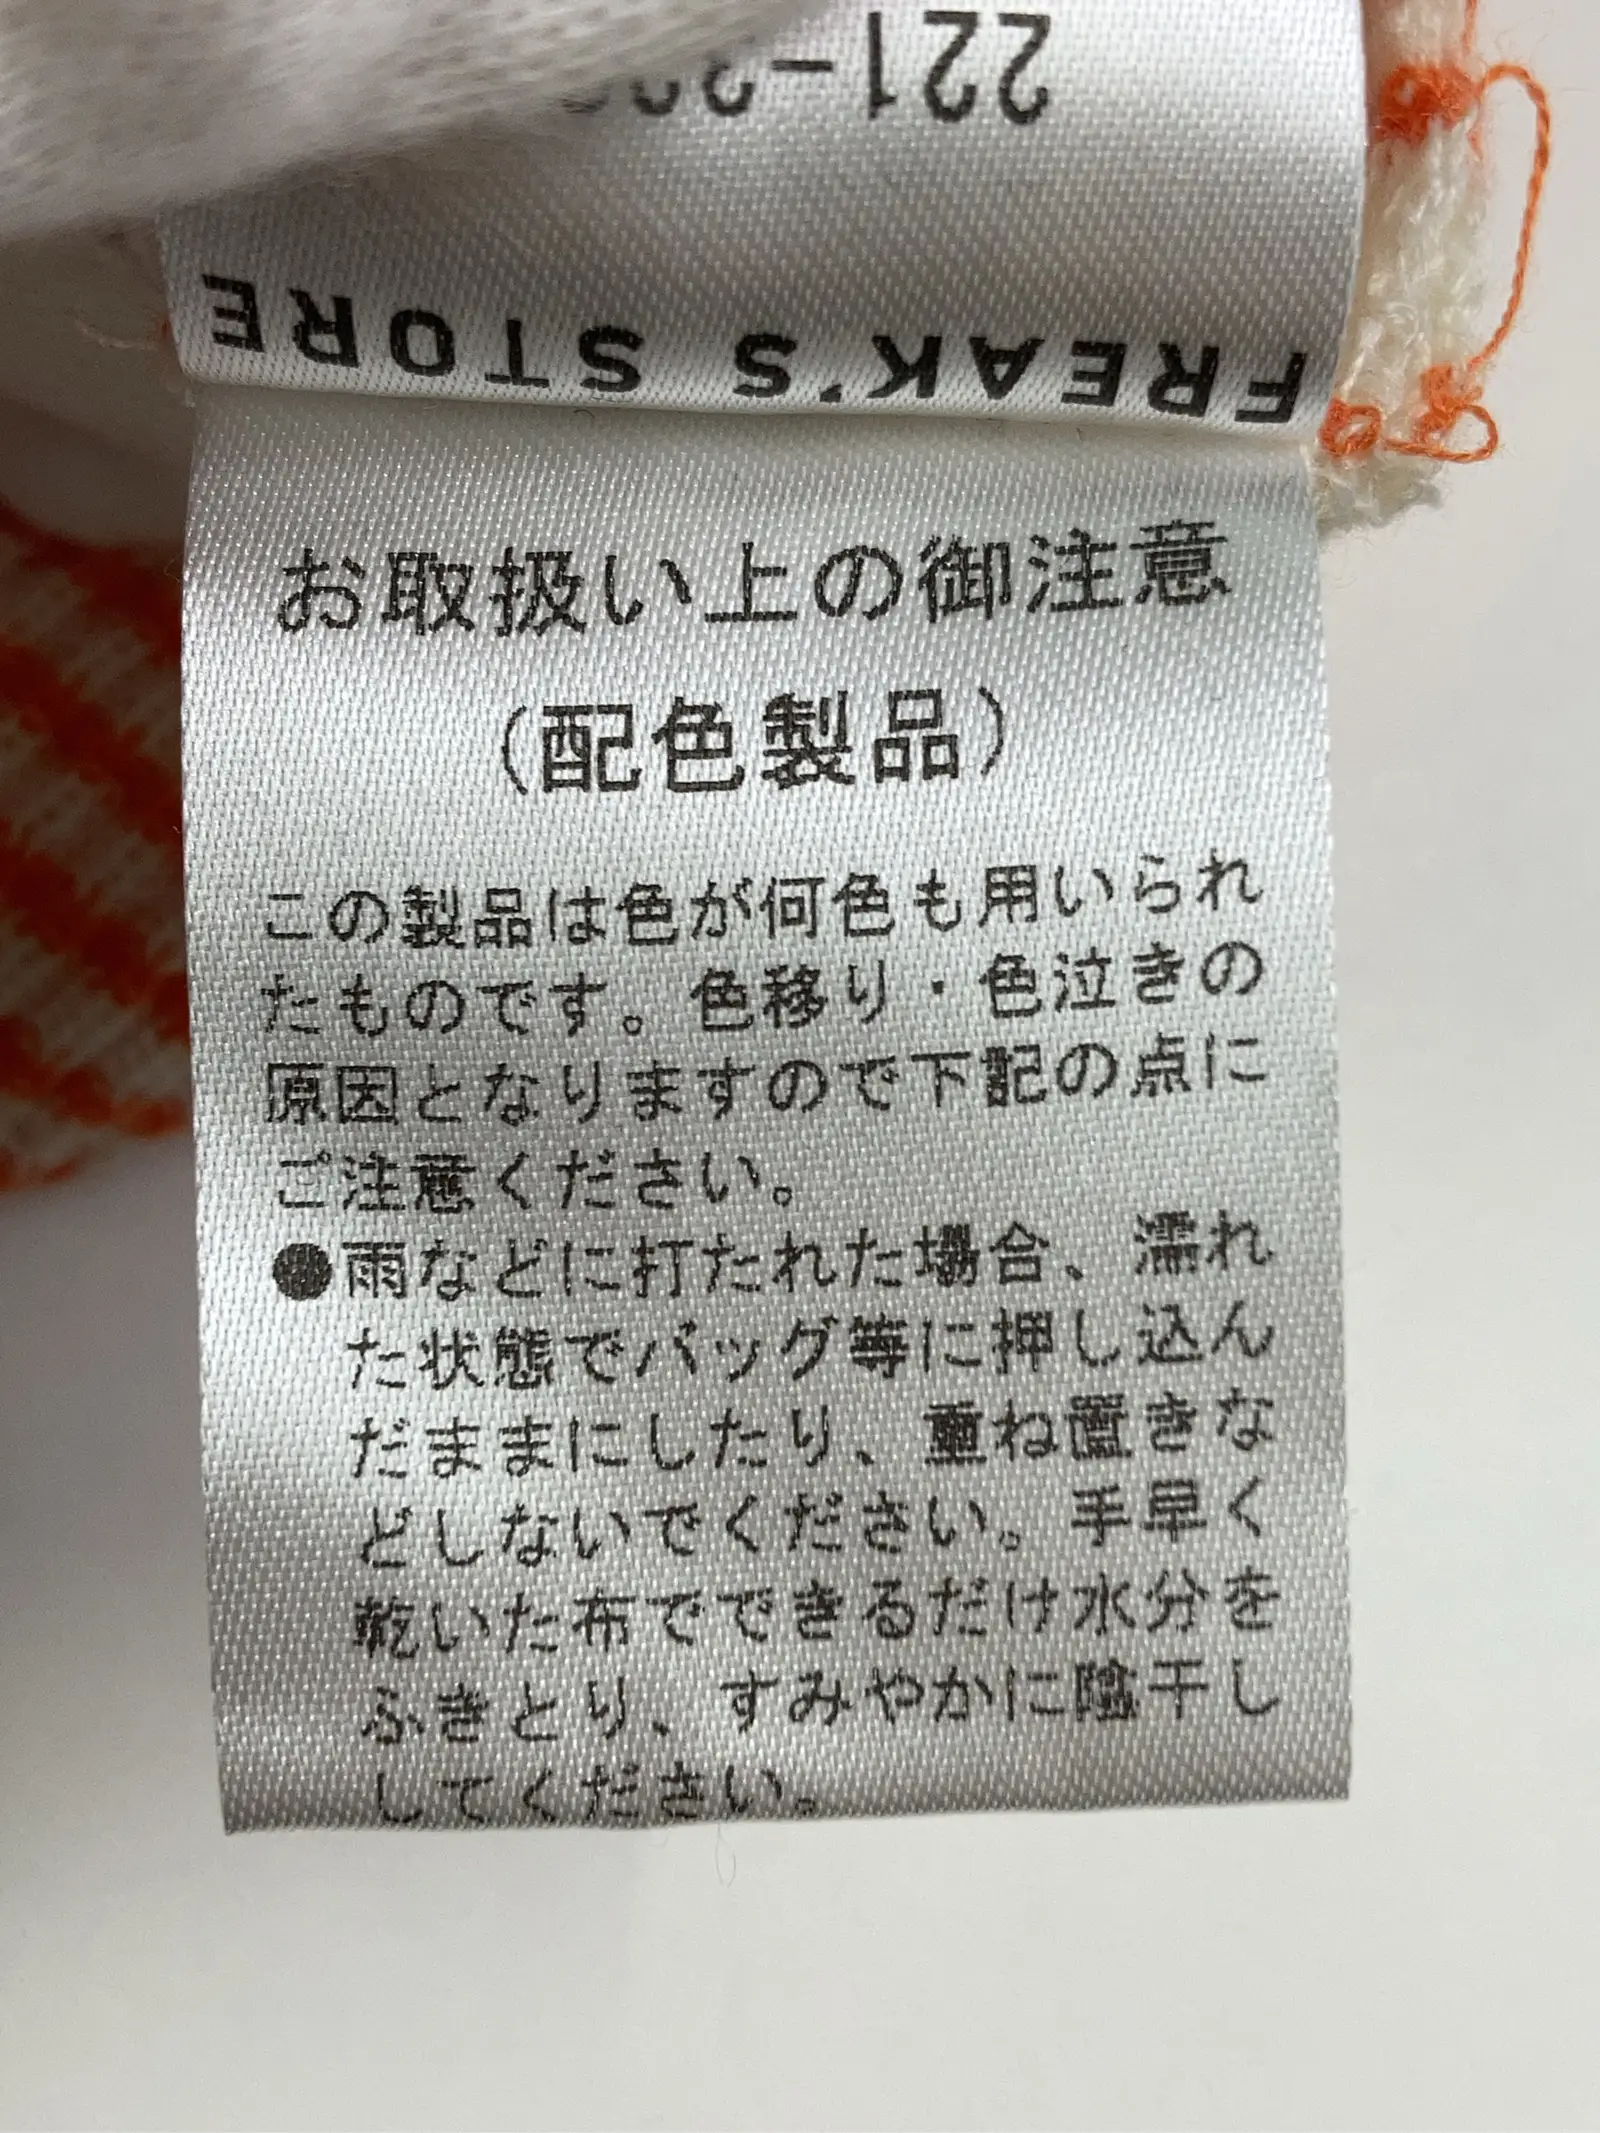 221-
FREAK'S STORE
お取扱い上の御注意
（配色製品）
この製品は色が何色も用いられ
たものです。色移り・色泣きの
原因となりますので下記の点に
ご注意ください。
●雨などに打たれた場合、濡れ
た状態でバッグ等に押し込ん
だままにしたり、重ね置きな
どしないでください。手早く
乾いた布でできるだけ水分を
ふきとり、すみやかに陰干し
してください。